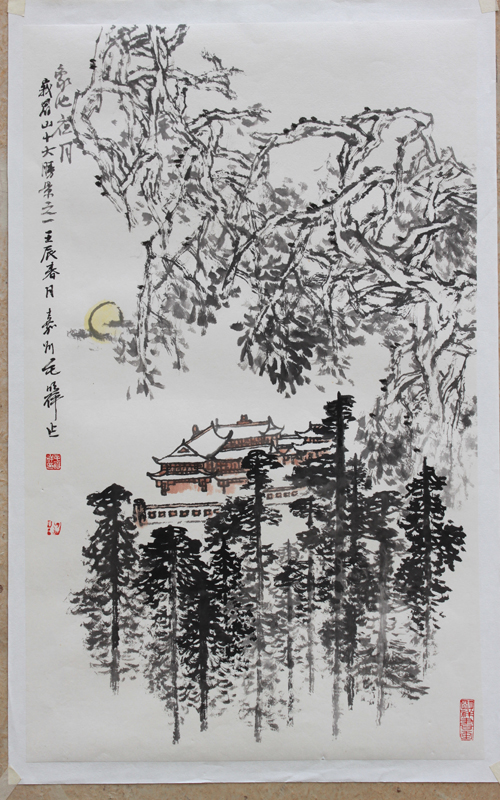 象池夜月
峨眉山十大勝景之一 壬辰春月 嘉州毛